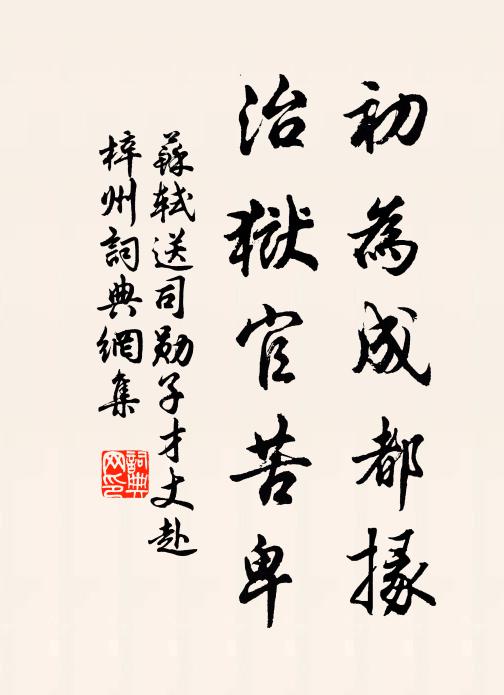 初為成都掾
治獄官苦卑
蘇軾送司勛子才丈赴
梓州詞典網集
詞典網印